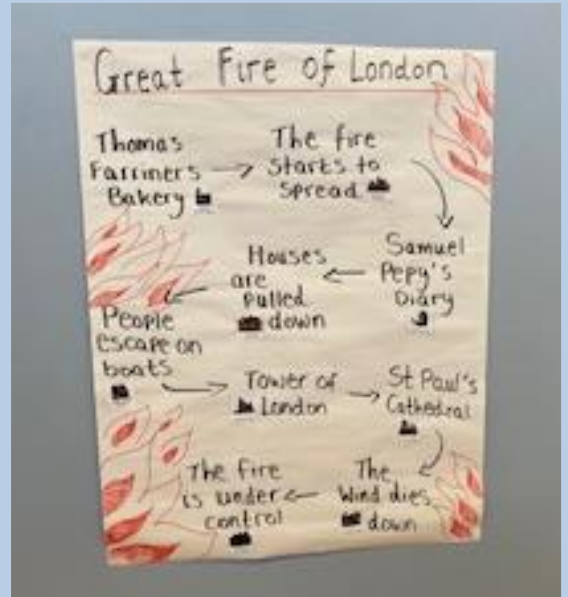 Great Fire of London
Thomas
Farriner's
Bakery
The fire
Starts to
Spread
Samuel
Pepy's
Diary
Houses
are
pulled
down
People
escape on
boats
Tower of
London
St Paul's
Cathedral
The
Wind dies
down
The fire
is under
control